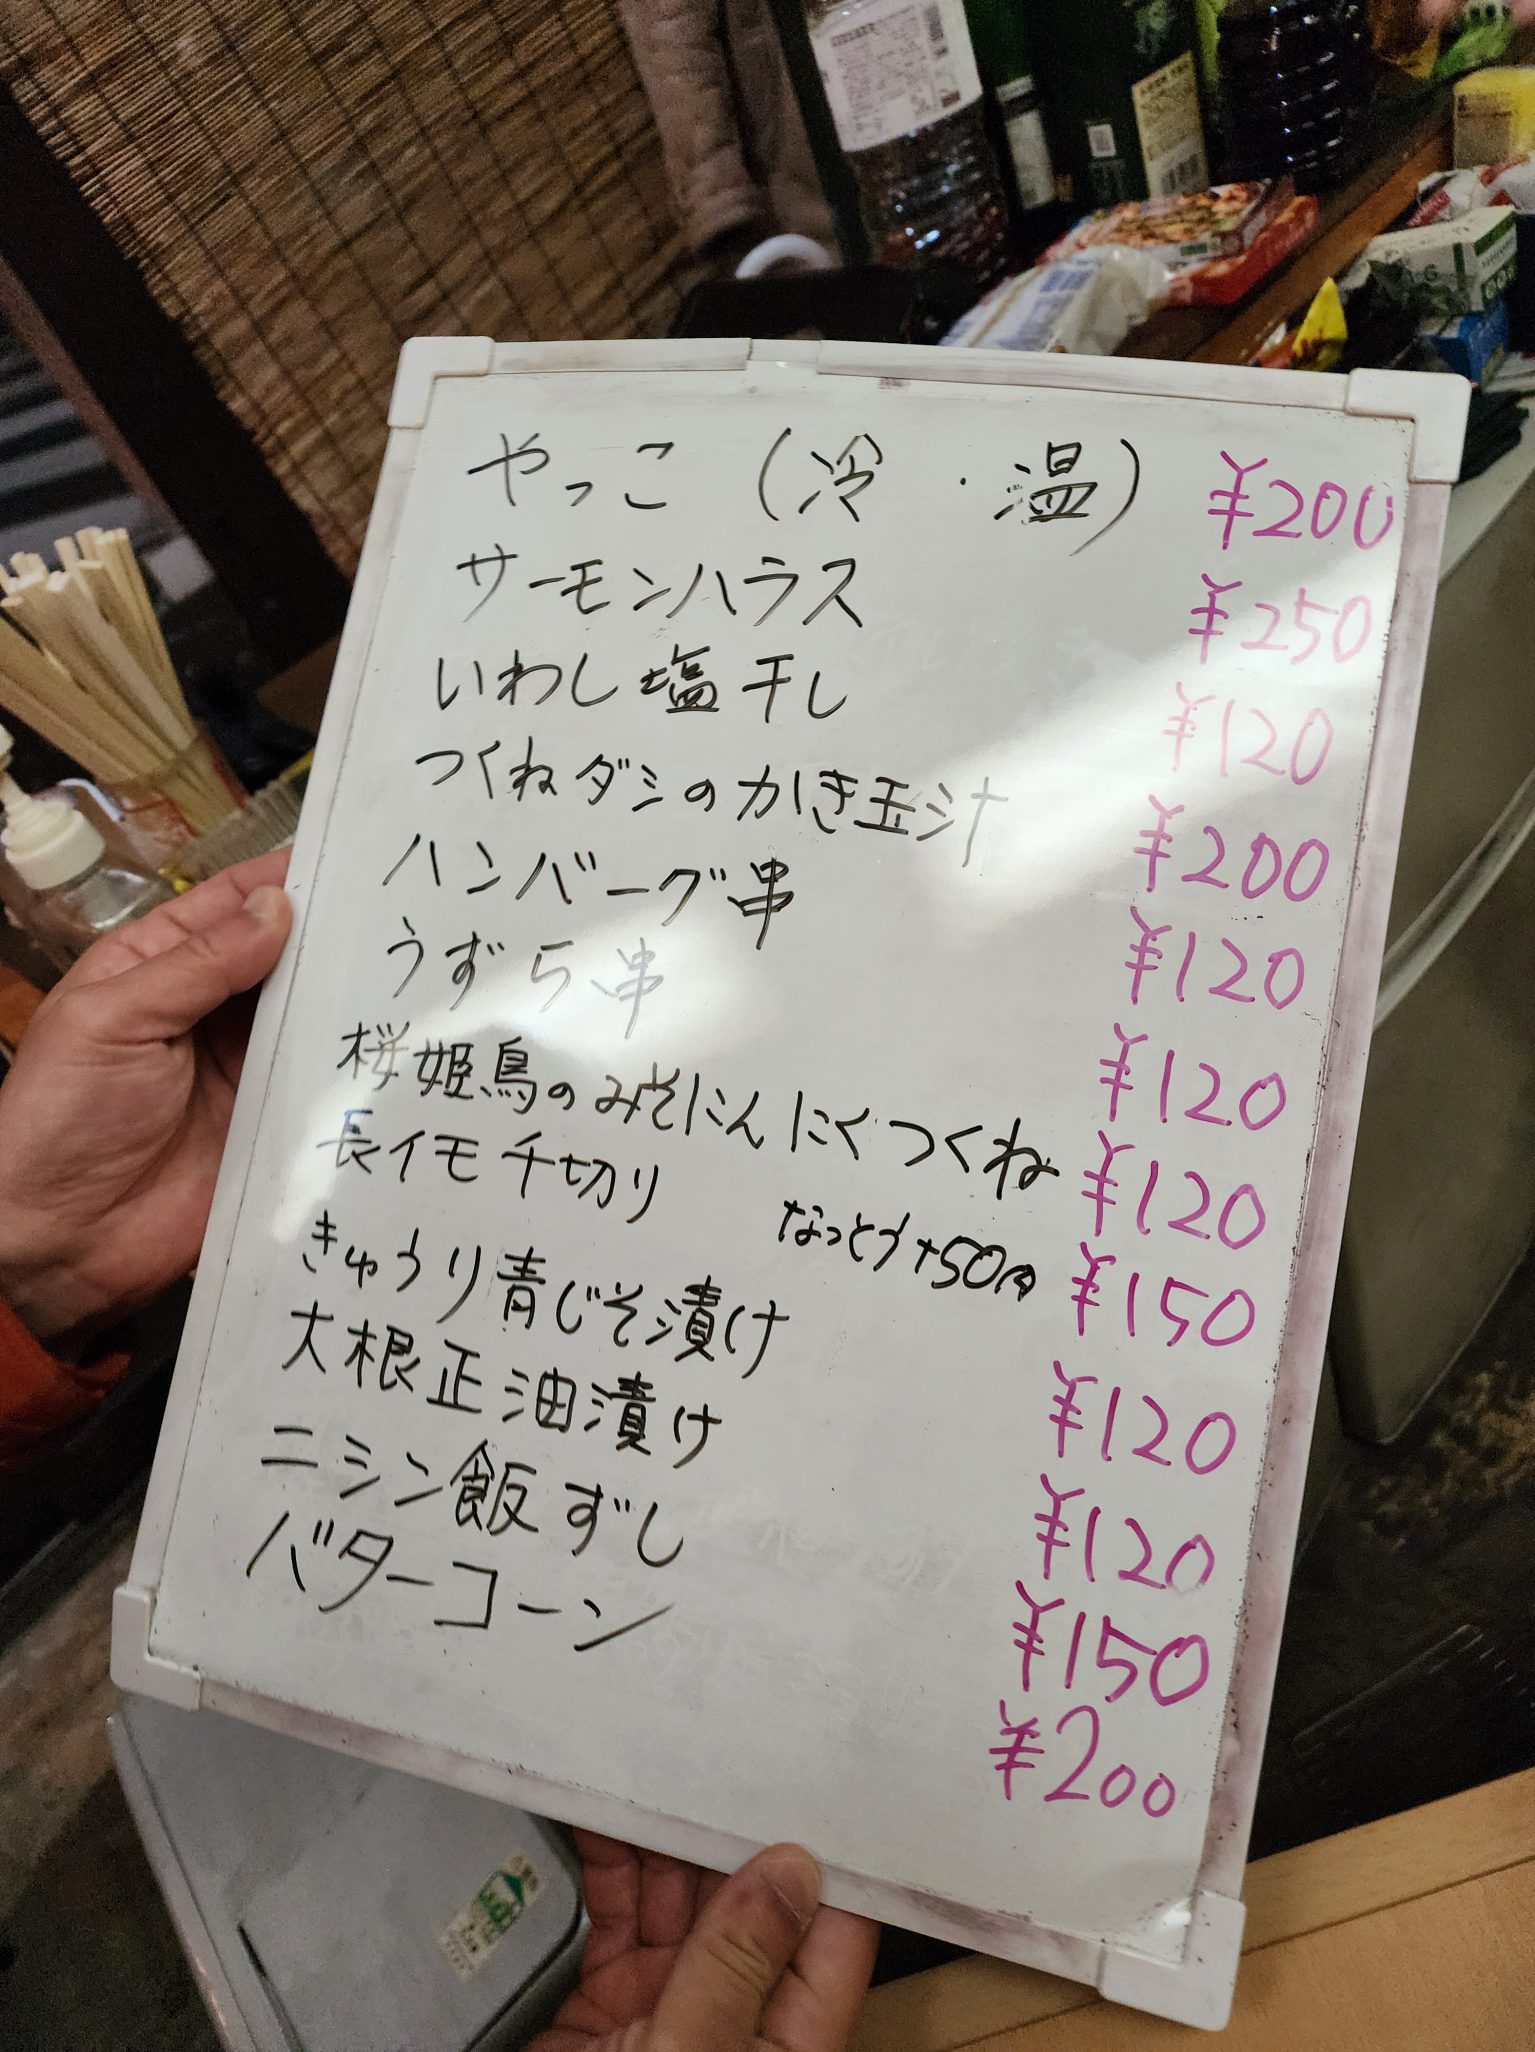 やっこ (冷・温) ¥200
サーモンハラス ¥250
いわし塩干し ¥120
つくねダシのかき玉汁 ¥200
ハンバーグ串 ¥120
うずら串 ¥120
桜姫鳥のみそにんにくつくね ¥120
長イモ千切り なっとう+50円 ¥150
きゅうり青じそ漬け ¥120
大根正油漬け ¥120
ニシン飯ずし ¥150
バターコーン ¥200